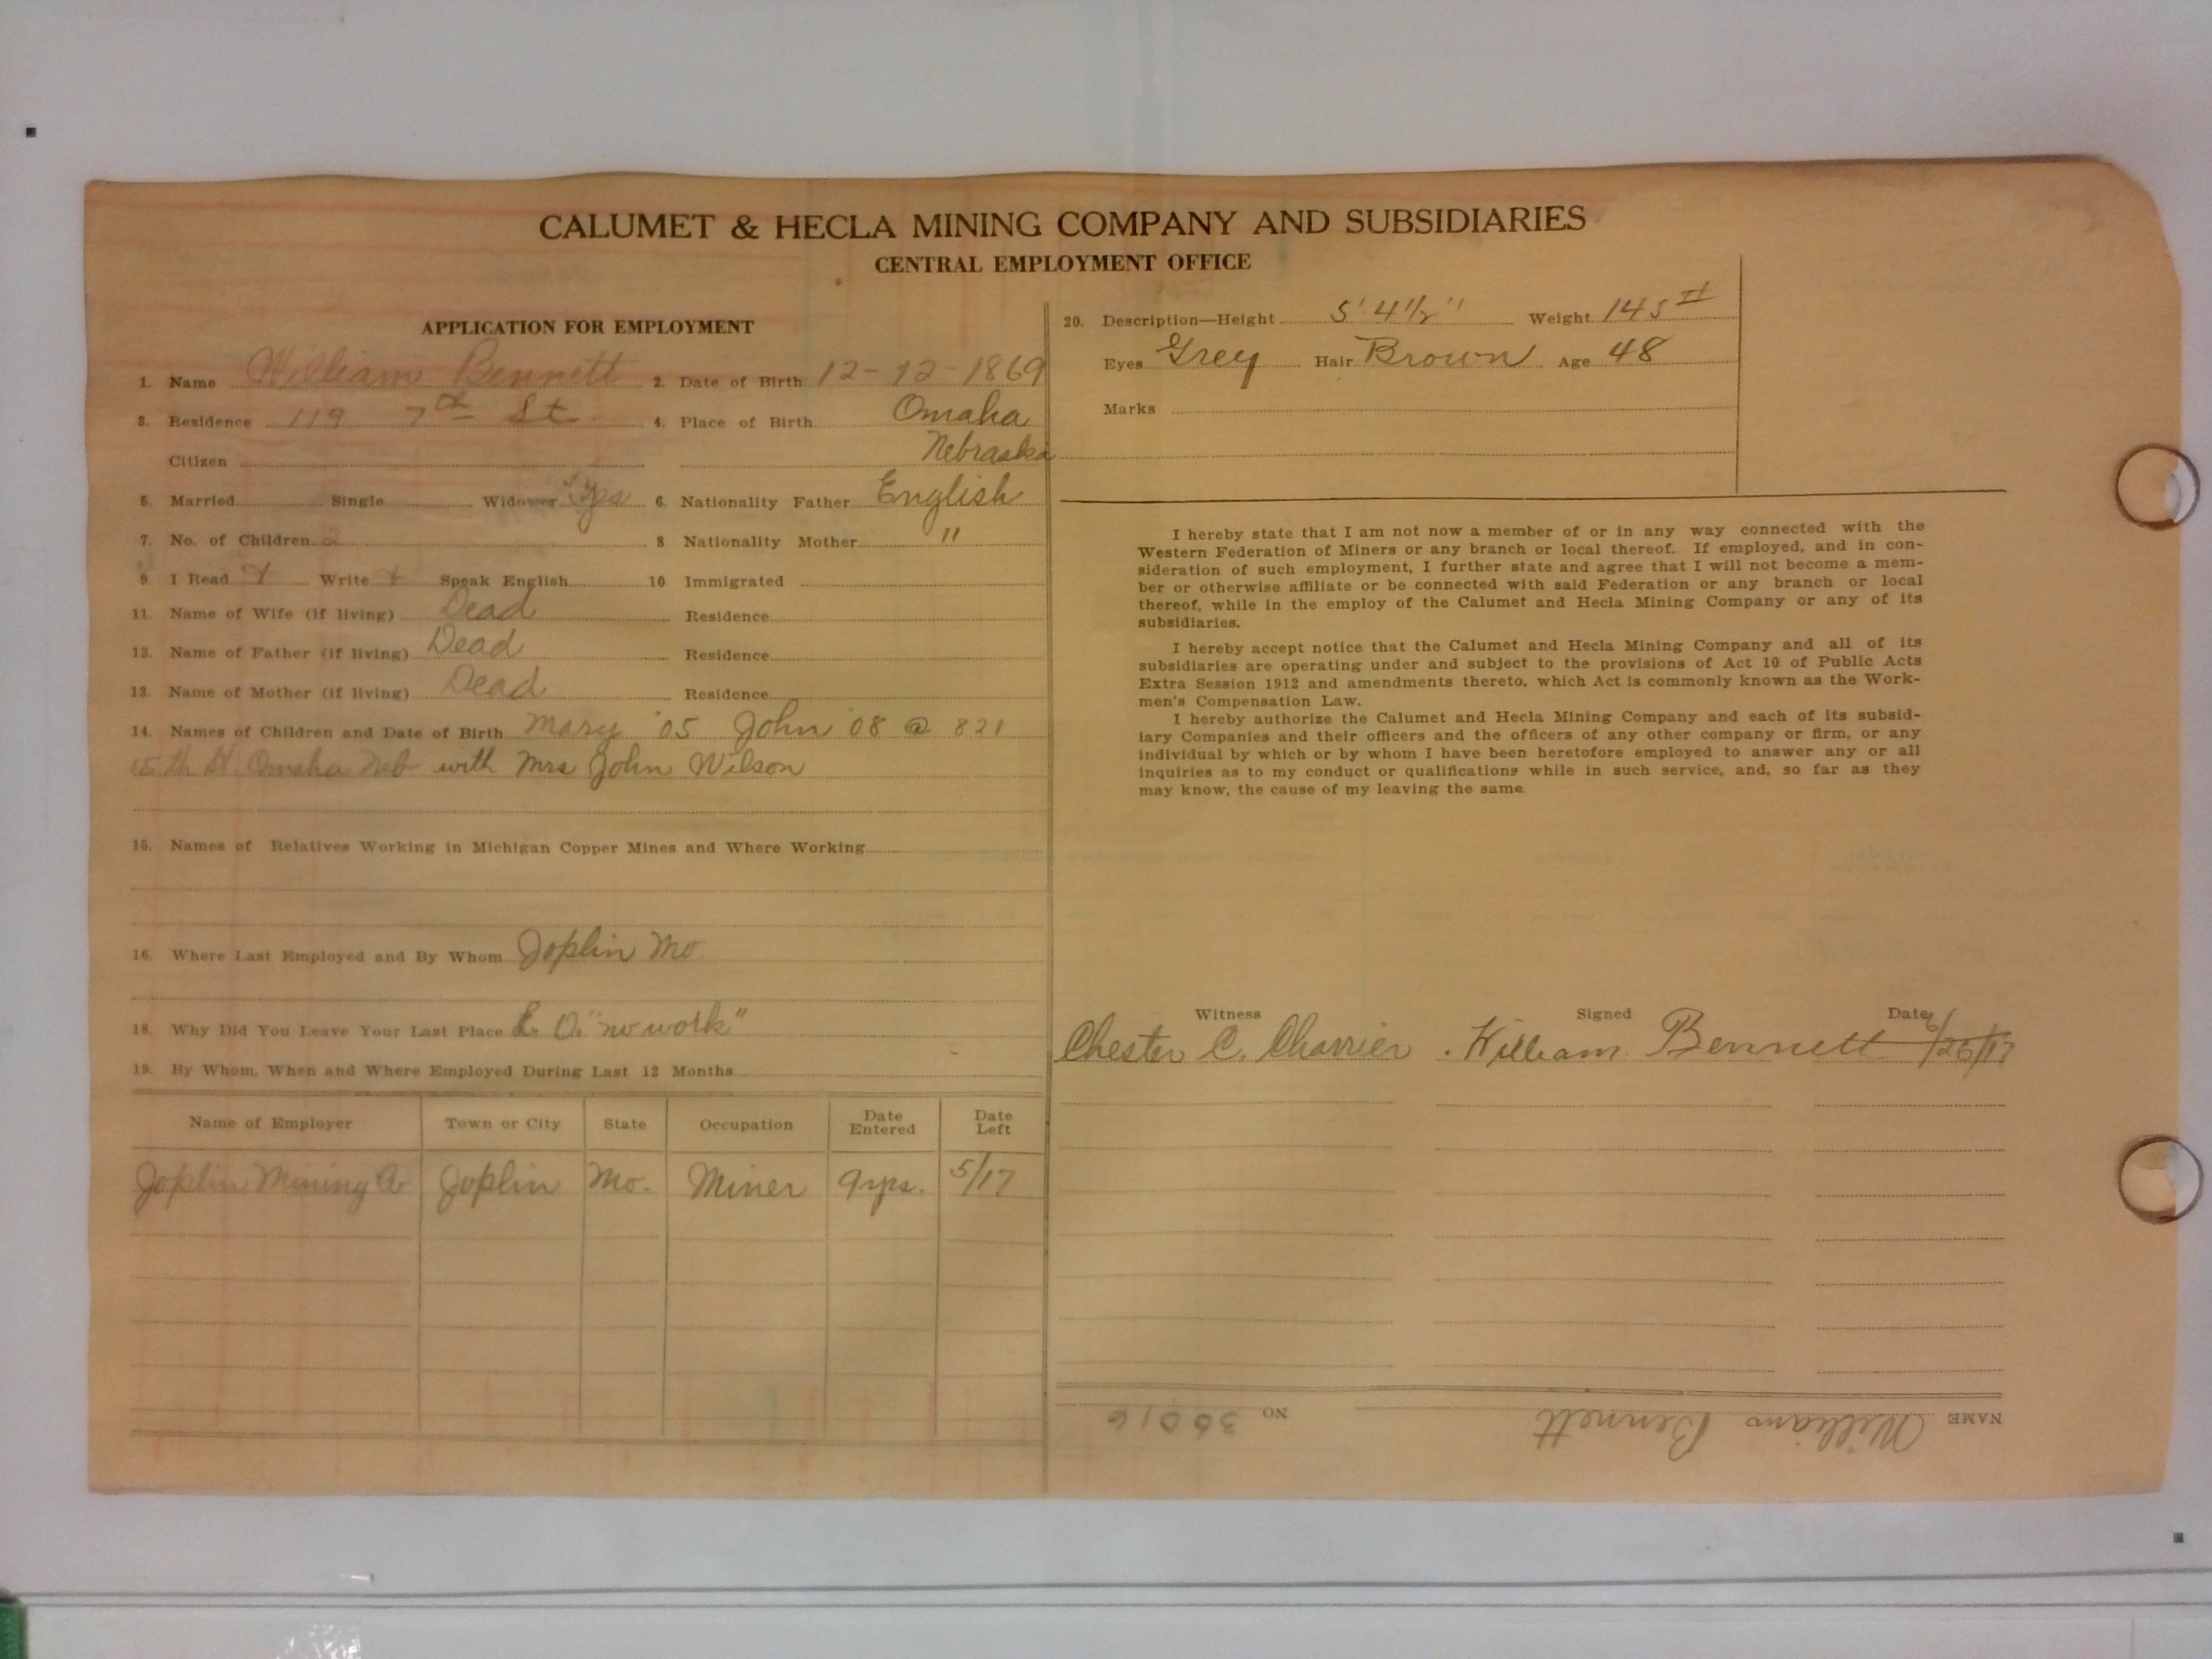 CALUMET & HECLA MINING COMPANY AND SUBSIDIARIES
CENTRAL EMPLOYMENT OFFICE
APPLICATION FOR EMPLOYMENT
1. Name William Bennett 2. Date of Birth 12-12-1869
3. Residence 119 7th St 4. Place of Birth Omaha
Citizen Nebraska
5. Married Single Widower Yes 6. Nationality Father English
7. No. of Children 2 8 Nationality Mother "
9 I Read + Write + Speak English 10 Immigrated
11. Name of Wife (if living) Dead Residence
12. Name of Father (if living) Dead Residence
13. Name of Mother (if living) Dead Residence
14. Names of Children and Date of Birth Mary '05 John '08 @ 821
15th St. Omaha Neb with Mrs John Wilson
15. Names of Relatives Working in Michigan Copper Mines and Where Working
16. Where Last Employed and By Whom Joplin Mo
18. Why Did You Leave Your Last Place O. "no work"
19. By Whom, When and Where Employed During Last 12 Months
Name of Employer Town or City State Occupation Date Entered Date Left
Joplin Mining Co Joplin Mo. Miner 9 yrs. 5/17
20. Description—Height 5' 4½" Weight 145 #
Eyes Grey Hair Brown Age 48
Marks
I hereby state that I am not now a member of or in any way connected with the
Western Federation of Miners or any branch or local thereof. If employed, and in con-
sideration of such employment, I further state and agree that I will not become a mem-
ber or otherwise affiliate or be connected with said Federation or any branch or local
thereof, while in the employ of the Calumet and Hecla Mining Company or any of its
subsidiaries.
I hereby accept notice that the Calumet and Hecla Mining Company and all of its
subsidiaries are operating under and subject to the provisions of Act 10 of Public Acts
Extra Session 1912 and amendments thereto, which Act is commonly known as the Work-
men's Compensation Law.
I hereby authorize the Calumet and Hecla Mining Company and each of its subsid-
iary Companies and their officers and the officers of any other company or firm, or any
individual by which or by whom I have been heretofore employed to answer any or all
inquiries as to my conduct or qualifications while in such service, and, so far as they
may know, the cause of my leaving the same
Witness Signed Date
Chester C. Charrier William Bennett 6/26/17
NAME William Bennett NO 36016